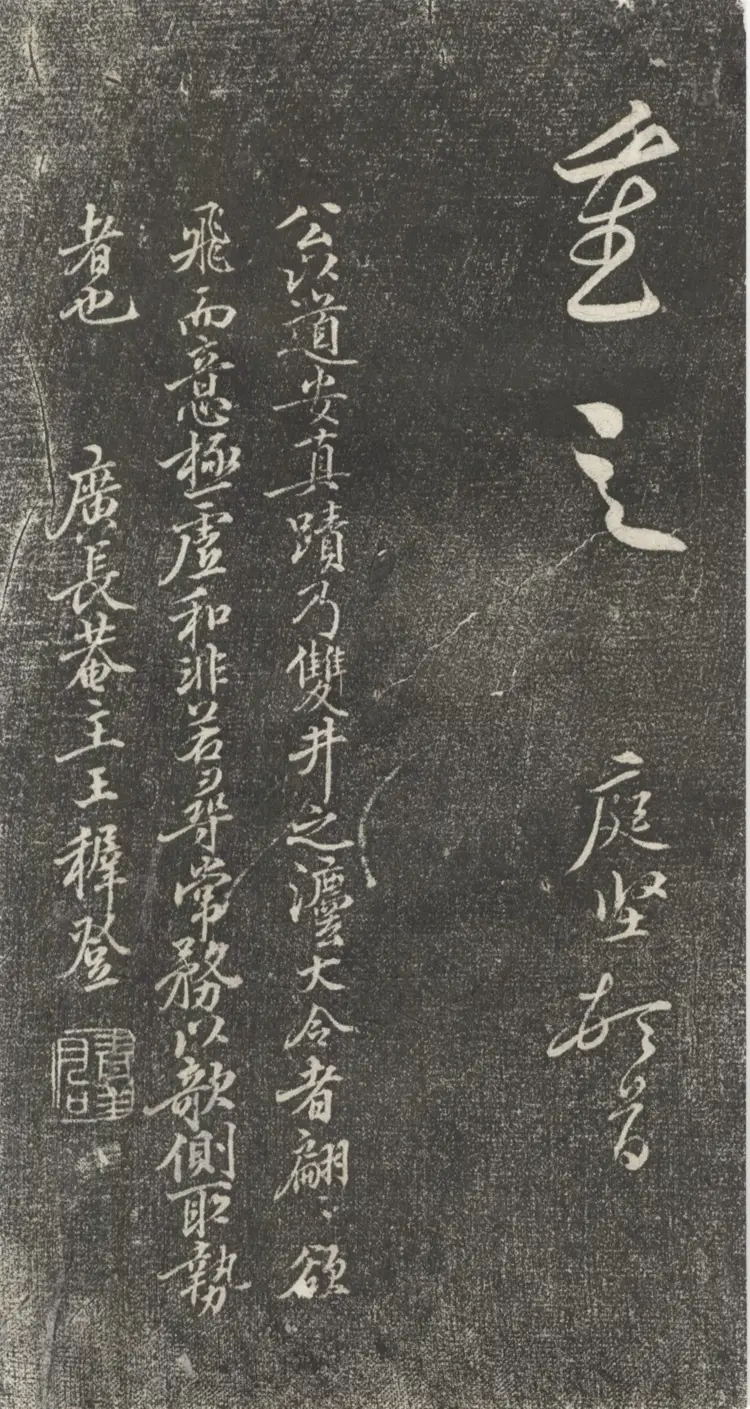 重之 庭坚頓首
公以道安真蹟乃雙井之灋大令者翩〻欲
飛而意極虛和非若尋常務以欹側取勢
者也 廣長菴主王穉登